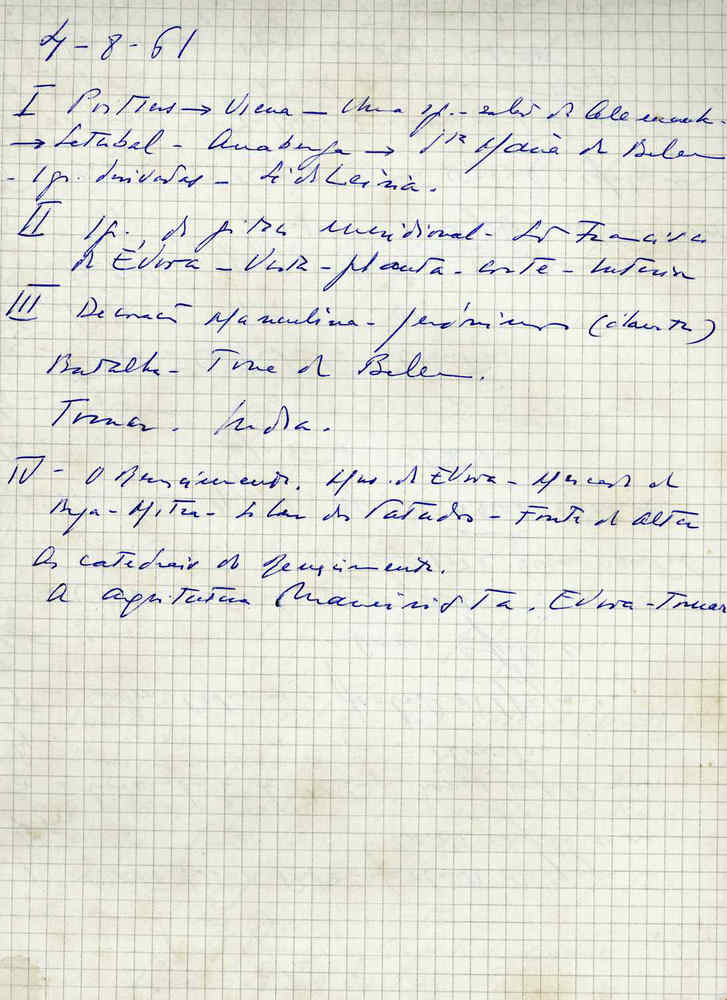 4-8-61
I Porttus → Viena — Uma ig. - salão de
→ Setubal - Anaberga → Sta Maria de Belem
- Igr. derivadas - Sé de Leiria.
II Igr. de pitra meridional - São Francisco
de Évora - Vista - planta - corte - interior
III Decoração Masculina - Jerónimos (claustro)
Batalha - Torre de Belem.
Tomar. India.
IV - O Renascimento. Mus. de Évora - de
Beja - Mitra - Solar dos - Fonte de Alter
As catedrais do Renascimento.
A Maneirista. Évora - Tomar